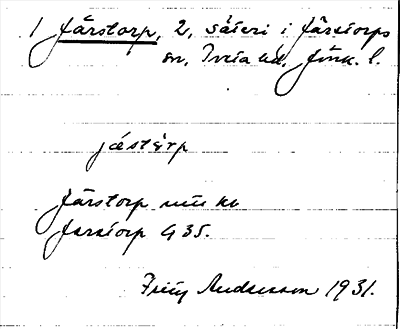 1 Järstorp, 2, säteri i Järstorps
sn, Tveta hd, Jönk. l.
jástèrp
Järstorp
Jarstorp G 35.
Andersson 1931.